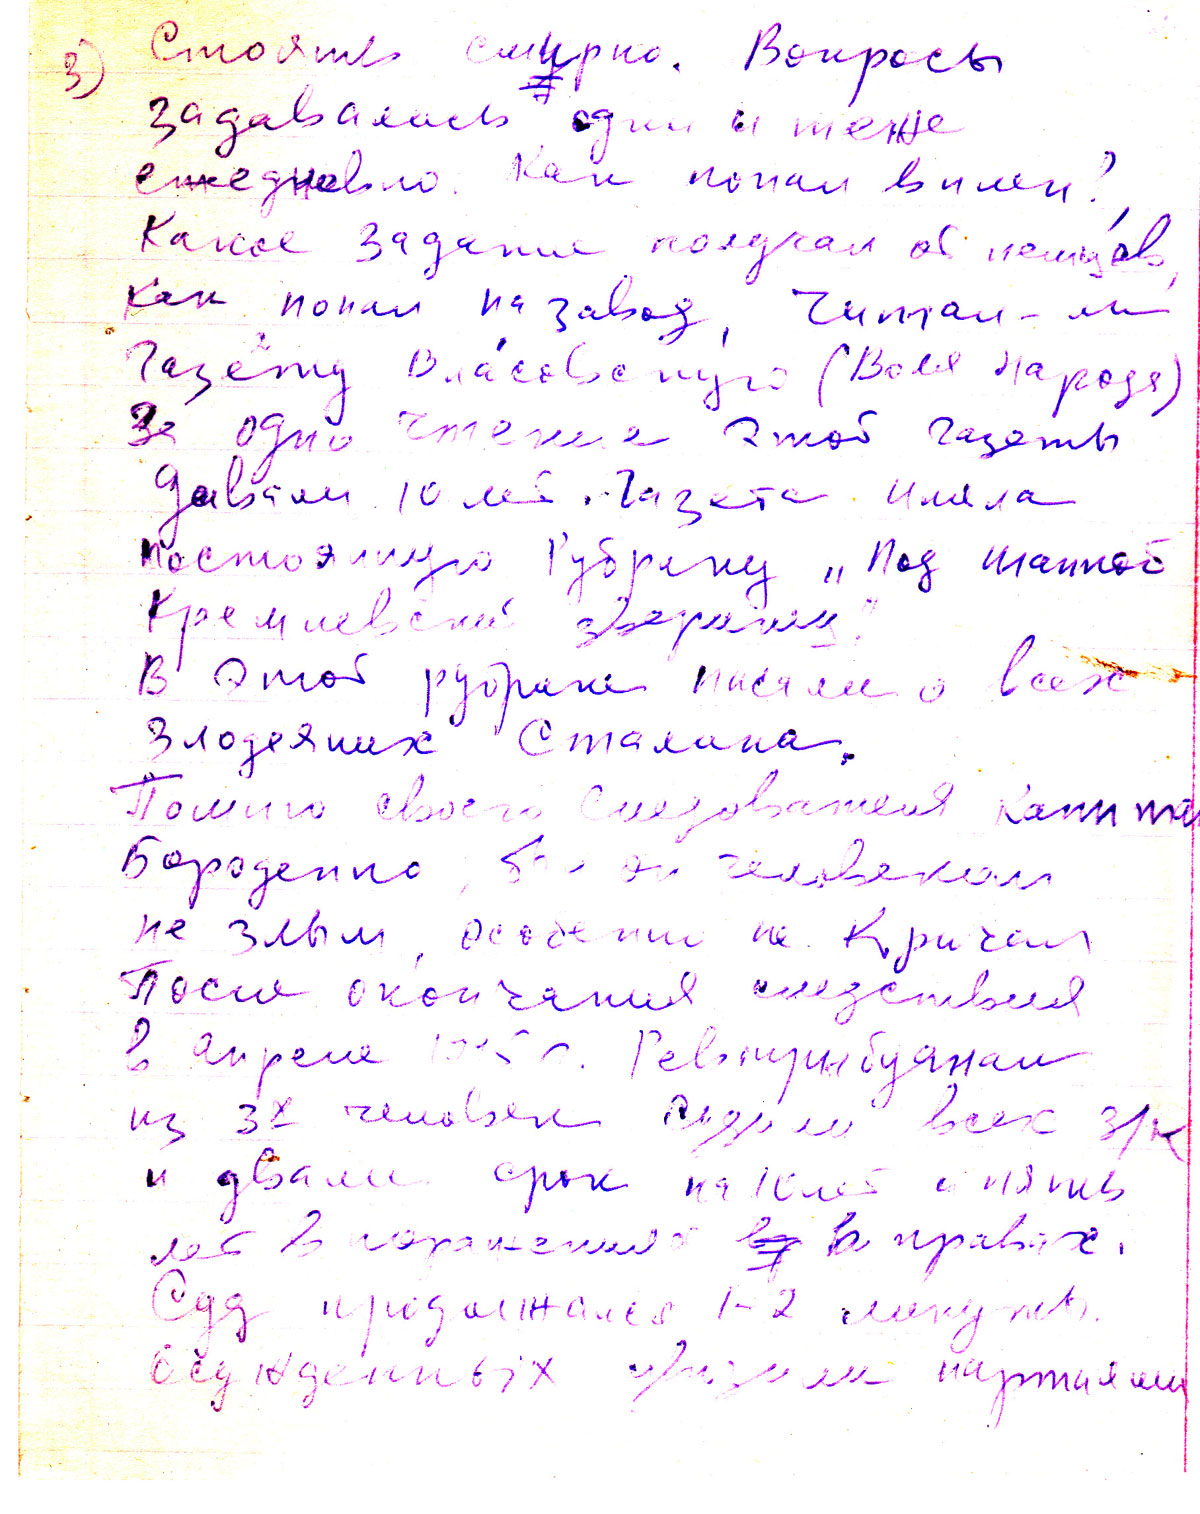 3) Стоять смирно. Вопросы
задавались одни и теже
ежедневно. Как попал в плен?
Какое задание получал от немцов,
как попал на завод, читал-ли
газету Власовскую (Воля Народа)
За одно чтение этой газеты
давали 10 лет. Газета имела
постоянную Рубрику „Под шапкой
Кремлевский зверинец"
В этой рубрике писали о всех
Злодеяниях Сталина.
Помню своего следователя капита
Бороденко, был он человеком
не злым, особенно не кричал
После окончания следствия
в апреле 1945 г. Ревтрибуналом
из 3х человек судили всех з/к
и двали срок на 10 лет и пять
лет в поражений в правах.
Суд продолжался 1-2 минуты.
Осужденных уводили партиями